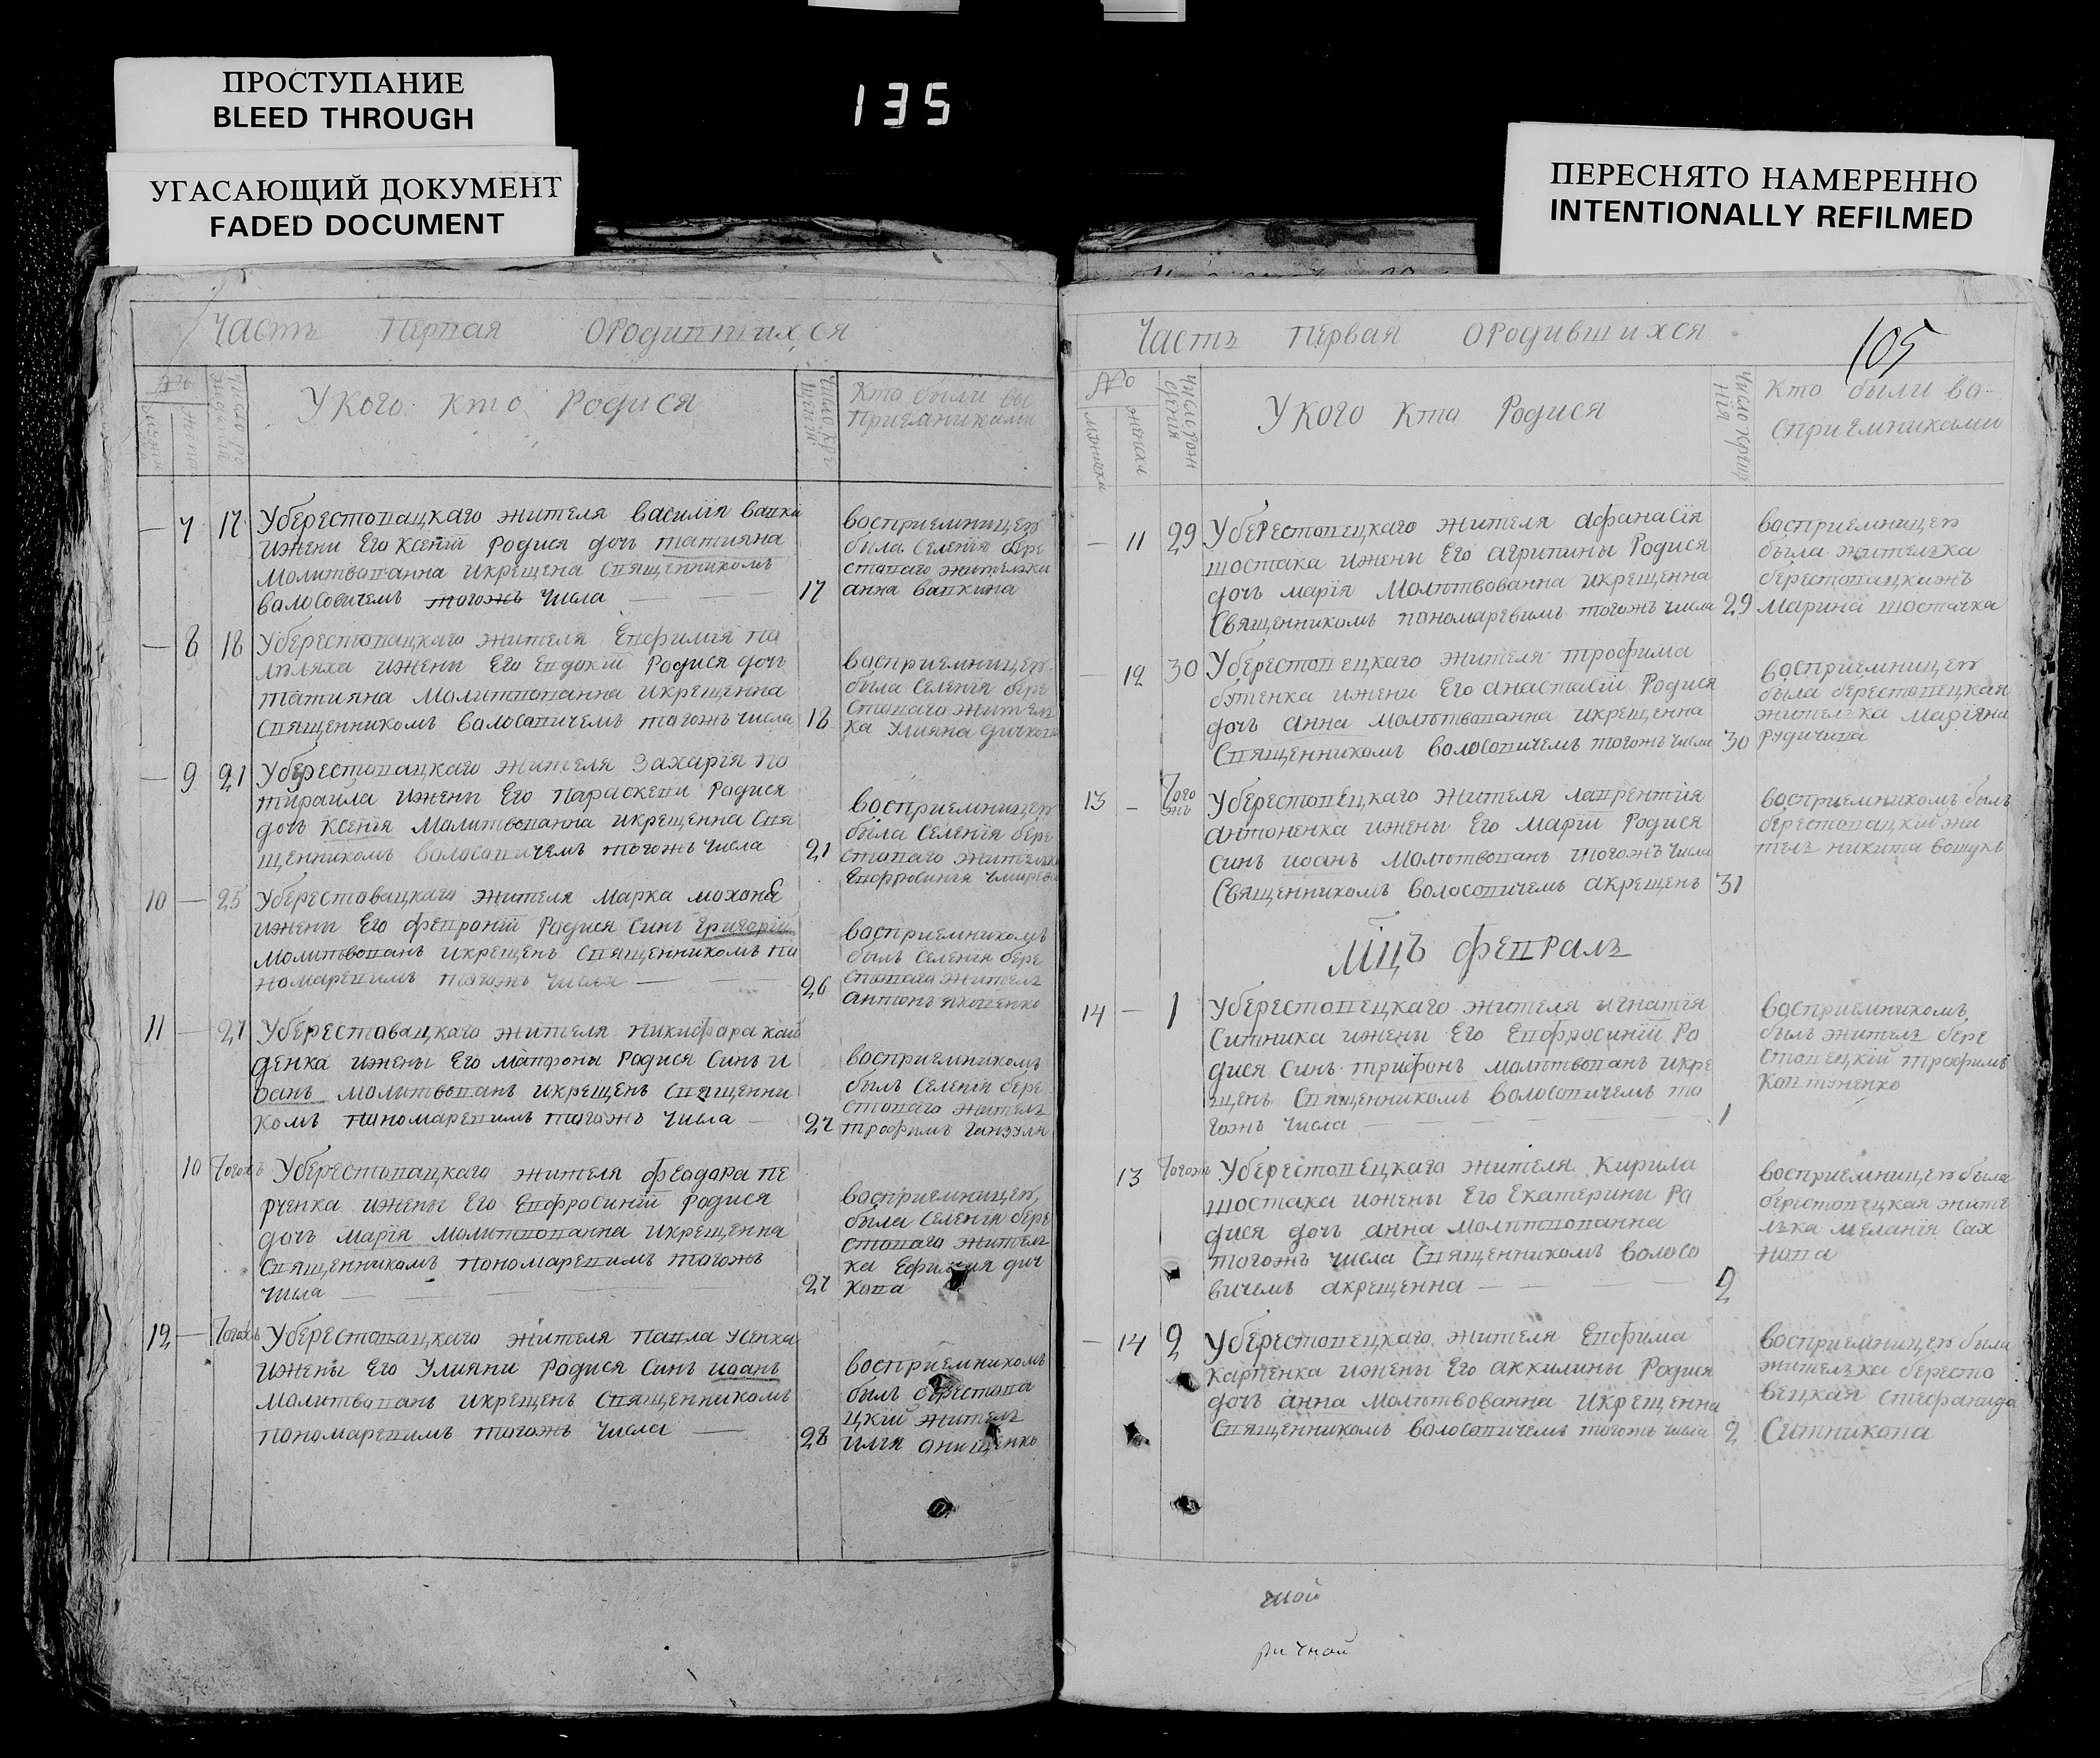 ПРОСТУПАНИЕ
BLEED THROUGH
УГАСАЮЩИЙ ДОКУМЕНТ
FADED DOCUMENT
135
ПЕРЕСНЯТО НАМЕРЕННО
INTENTIONALLY REFILMED
Часть Первая ородившихся
У Кого кто Родися
Кто были во
Приемниками
— 7 17 Уберестовацкаго жителя василия вовки
ижени Его Ксении родися дочь татияна
молитвованна икрещена священником
волосовичемъ тогожъ числа 17
восприемницею
была Селения бере
стоваго жителка
анна вавкина
— 8 18 Уберестовацкаго жителя Евфимия па
ляха ижени Его Евдокии Родися дочь
татияна молитвованна икрещенна
священникомъ волосовичемъ тогожъ числа 18
восприемницею
была Селения бере
стоваго жител
ка Улияна дичкова
— 9 21 Уберестовацкаго жителя Захария по
тираила ижены Его Параскеви Родися
дочь Ксения Молитвованна икрещенна Свя
щенникомъ волосовичемъ тогожъ числа 21
восприемницею
была Селения бере
стоваго жителка
Евфросиния
10 — 25 Уберестовацкаго жителя Марка мохоне
ижены Его февронии Родися Синъ григорий
молитвованъ икрещенъ Священникомъ по
номаревимъ тогожъ числа 26
восприемникомъ
былъ Селения бере
стоваго жителъ
антонъ яковенко
11 — 27 Уберестовацкаго жителя никифара кай
денка ижены Его матроны Родися Синъ и
оанъ молитвованъ икрещенъ Священни
комъ пономаревимъ тогожъ числа 27
восприемникомъ
былъ Селения бере
стоваго жителъ
трофимъ ганзуля
10 Тогожъ Уберестовацкаго жителя феодора пе
рченка ижены Его Евфросинии родися
дочь мария молитвованна икрещенна
священникомъ пономаревимъ тогожъ
числа 27
восприемницею
была Селения бере
стоваго жител
ка Ефимия дич
кова
12 — Тогожъ Уберестовацкаго жителя павла усенка
ижены Его Улияни родися Синъ иоанъ
молитвованъ икрещенъ Священникомъ
пономаревимъ тогожъ числа 28
восприемникомъ
былъ берестова
цкий жителъ
илия онищенко
Часть первая ородившихся
105
№
У Кого Кто Родися
Кто были во
сприемниками
— 11 29 Уберестовецкаго жителя афанасия
шостака ижены Его агрипины Родися
дочь мария Молитвованна икрещенна
Священникомъ пономаревимъ тогожъ числа 29
восприемницею
была жителка
берестовацкижъ
Марина шостачка
— 12 30 Уберестовецкаго жителя трофима
бятенка ижени Его анастасии Родися
дочь анна молитвованна икрещенна
Священникомъ волосовичемъ тогожъ числа 30
восприемницею
была берестовецкая
жителка Марияна
рудичива
13 — Того
жъ Уберестовецкаго жителя лаврентия
антоненка ижены Его марии Родися
синъ иоанъ молитвованъ тогожъ числа
Священникомъ волосовичемъ акрещенъ 31
восприемникомъ былъ
берестовацкий жи
телъ никита вошукъ
мцъ февраль
14 — 1 Уберестовецкаго жителя игнатия
Ситника ижены Его Евфросинии Ро
дися Синъ трифонъ молитвованъ икре
щенъ Священникомъ волосовичемъ то
гожъ числа 1
восприемникомъ
былъ жителъ бере
стовецкий трофимъ
Ковтуненко
13 Тогожъ Уберестовецкаго жителя Кирила
шостака ижены Его Екатерини Ро
дися дочь анна молитвованна
тогожъ числа Священникомъ волосо
вичемъ акрещенна 2
восприемницею была
берестовецкая жите
лка мелания Сах
нова
— 14 2 Уберестовецкаго жителя Евфима
карпенка ижены Его аккилины Родися
дочь анна молитвованна икрещенна
Священникомъ волосовичемъ тогожъ числа 2
восприемницею была
жителка бересто
вецкая стефанида
Ситникова